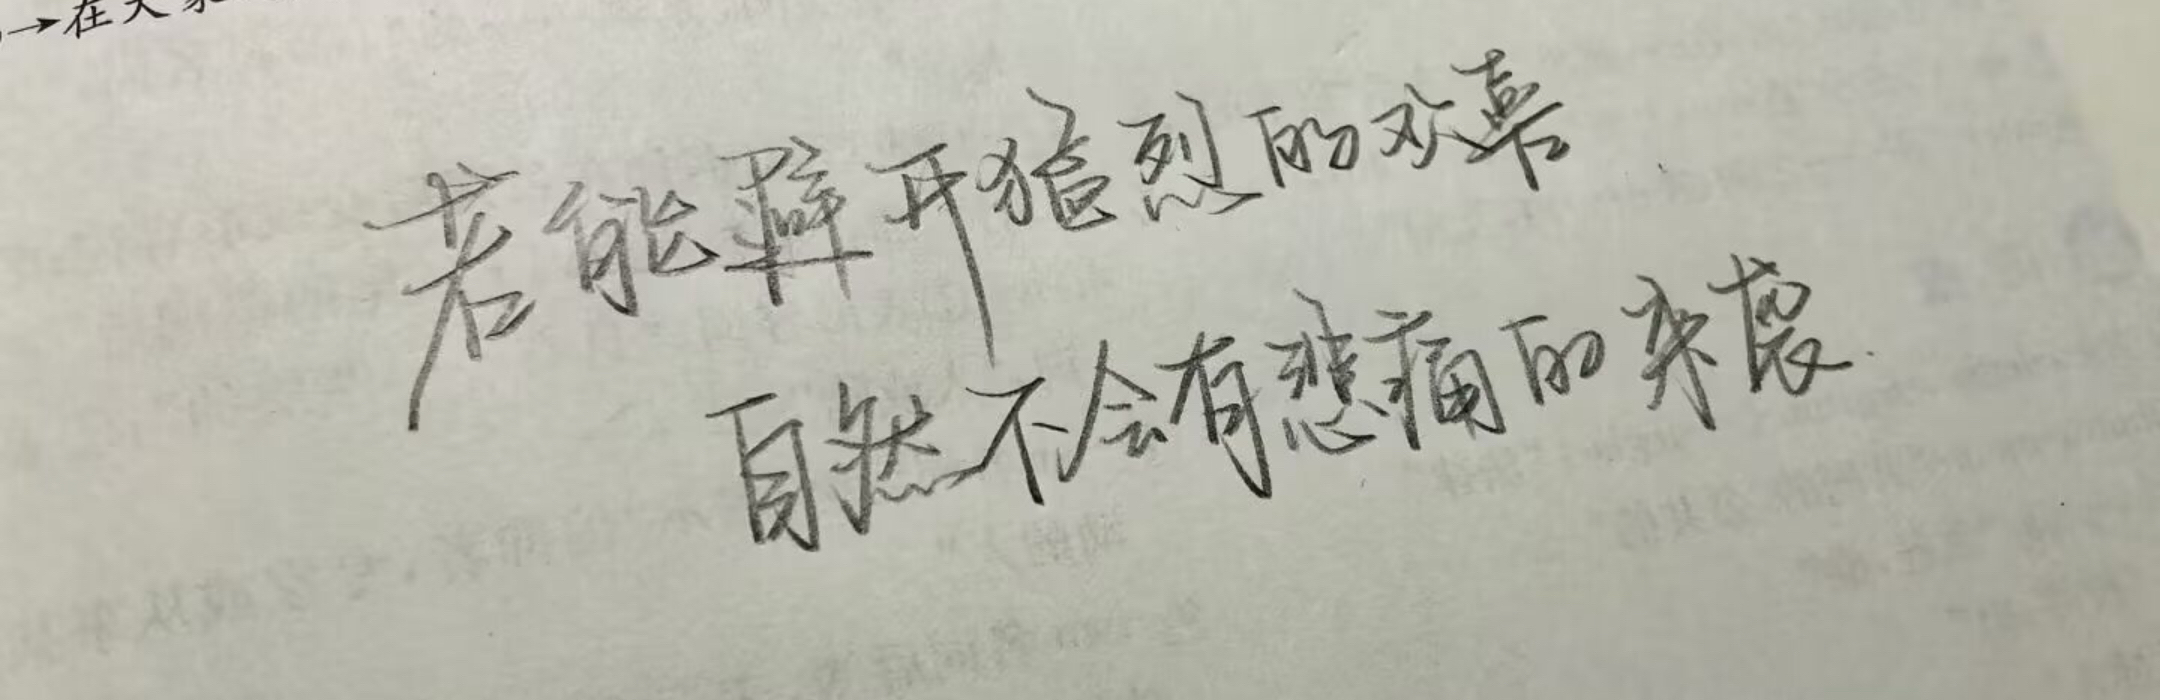 →在大家
若能避开猛烈的欢喜
自然不会有悲痛的来袭